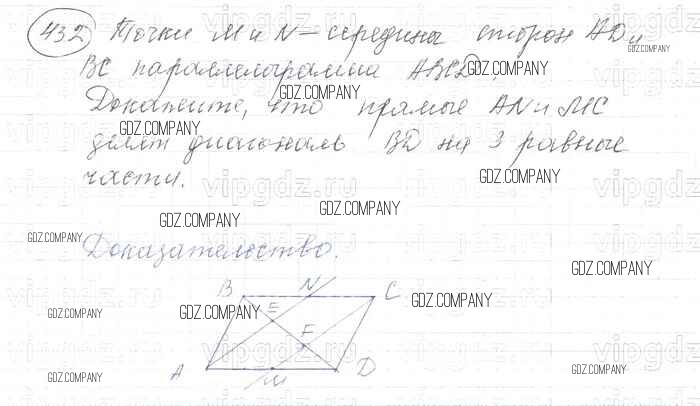 432 Точки M и N – середины сторон AD и
BC параллелограмма ABCD.
Докажите, что прямые AN и MC
делят диагональ BD на 3 равные
части.
Доказательство.
B N C
E
F
A M D
GDZ.COMPANY
GDZ.COMPANY
GDZ.COMPANY
GDZ.COMPANY
GDZ.COMPANY
GDZ.COMPANY
GDZ.COMPANY
GDZ.COMPANY
GDZ.COMPANY
GDZ.COMPANY
GDZ.COMPANY
GDZ.COMPANY
GDZ.COMPANY
GDZ.COMPANY